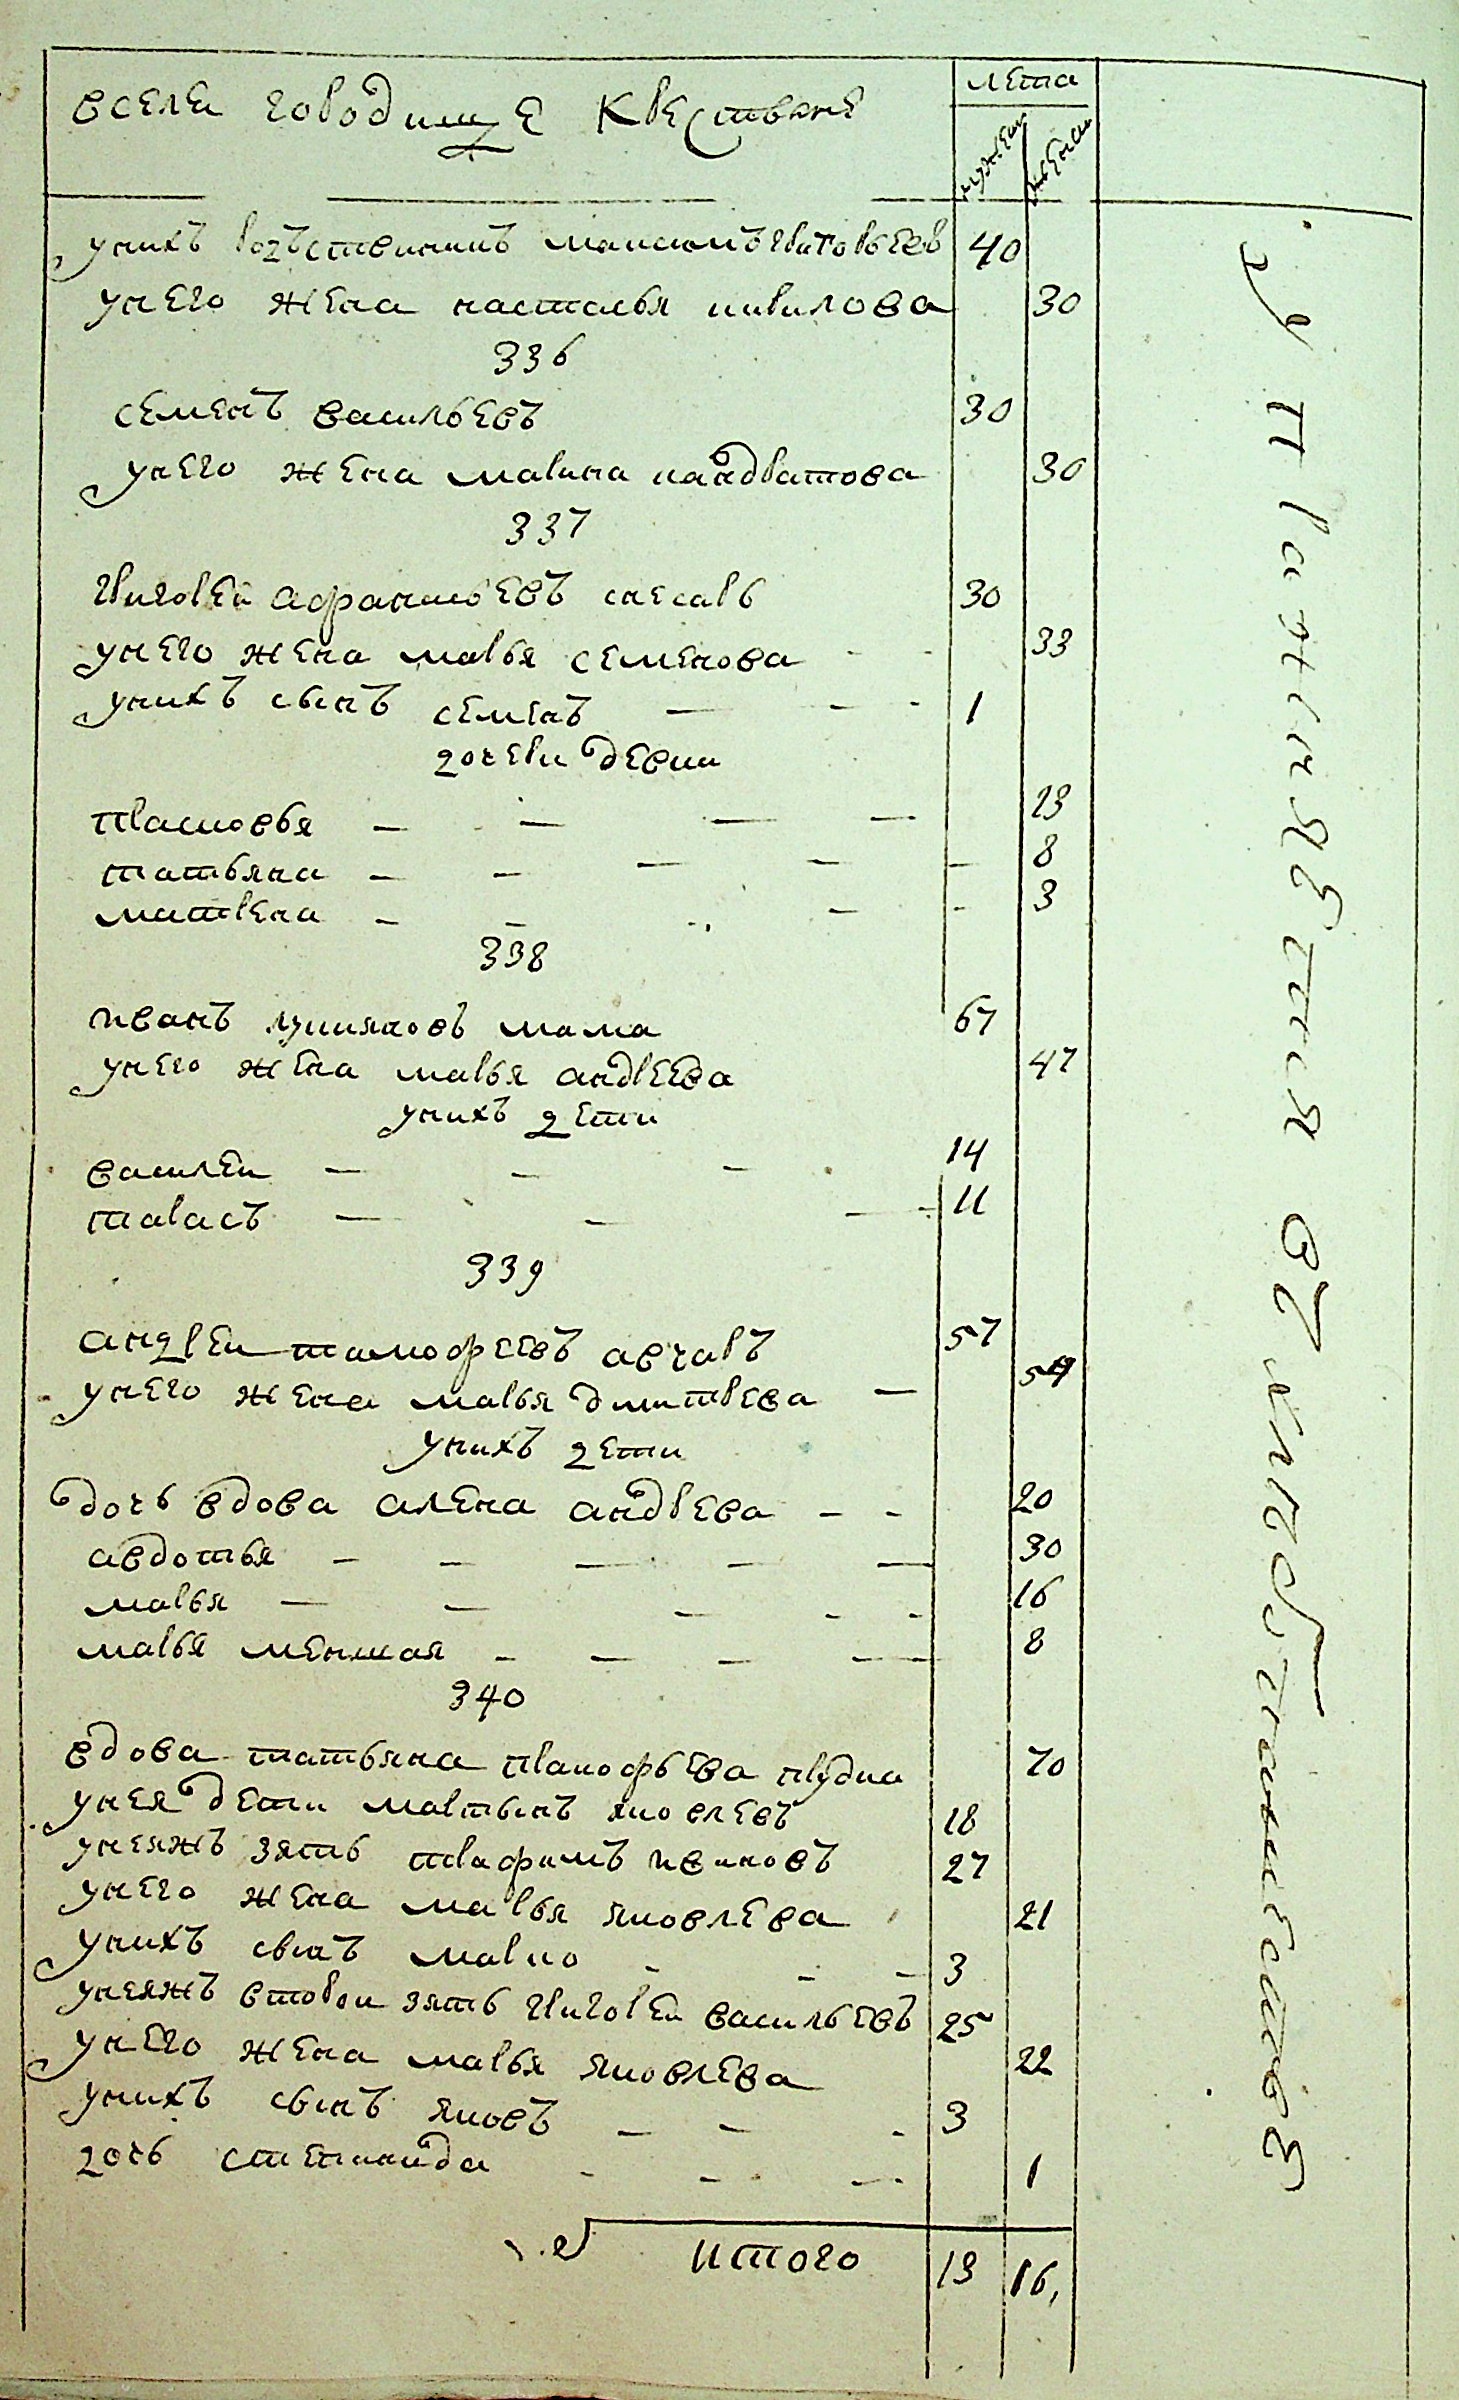 вселе городище крестяне
лета
мужеск
женск
унихъ родственникъ максимъ григорьевъ 40
унего жена настасья кирилова 30
336
семенъ васильевъ 30
унего жена марина кандратова 30
337
григореи афанасьевъ слесарь 30
унего жена марья семенова 33
унихъ сынъ семенъ 1
дочери девки
прасковья 13
татьяна 8
матрена 3
338
иванъ лукияновъ мама 67
унего жена марья андреева 47
унихъ дети
василеи 14
тарасъ 11
339
андреи тимофеевъ овчаръ 57
унего жена марья дмитрева 54
унихъ дети
дочь вдова алена андрева 20
авдотья 30
марья 16
марья меншая 8
340
вдова татьяна пракофьева 70
унея дети мартынъ яковлевъ 18
унеяжъ зять трафимъ ивановъ 27
унего жена марья яковлева 21
унихъ сынъ марко 3
унеяжъ второи зять григореи васильевъ 25
унего жена марья яковлева 22
унихъ сынъ яковъ 3
дочь степанида 1
итого 13 16
упражняется